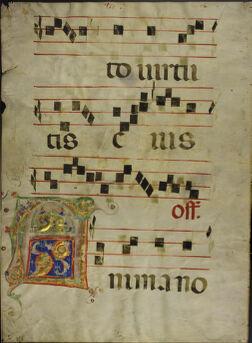 to uirtu
tis e ius
Off.
nima no